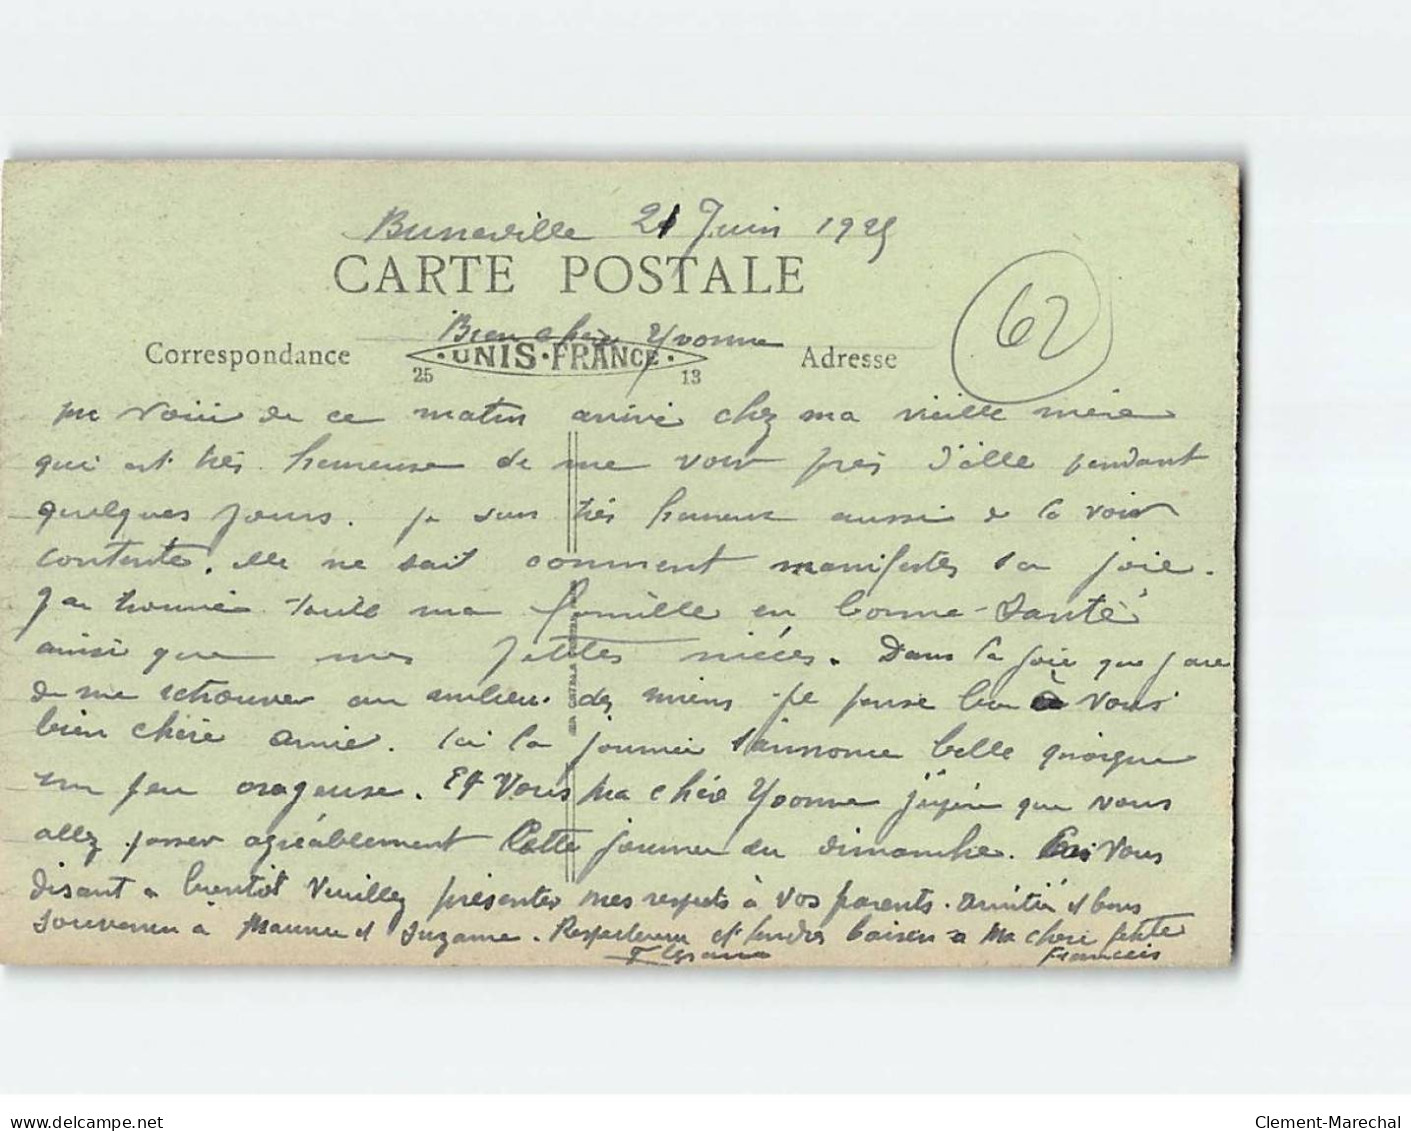 Buneville 21 Juin 1925
CARTE POSTALE
Bien chère Yvonne
Correspondance
UNIS-FRANCE
Adresse
25
13
62
me voici de ce matin arrivé chez ma vieille mère
qui est très heureuse de me voir près d'elle pendant
quelques jours. je suis très heureux aussi de la voir
contente. elle ne sait comment manifester sa joie.
J'ai trouvé toute ma famille en bonne santé
ainsi que mes petites nièces. Dans la joie que j'ai
de me retrouver au milieu des miens je pense à vous
bien chère amie. Ici la journée s'annonce belle quoique
un peu orageuse. Et Vous ma chère Yvonne j'espère que vous
allez passer agréablement Cette journée du dimanche. Vous
disant a bientôt Veuillez présenter mes respects à vos parents. amitié et bons
souvenirs à Maurice et Suzanne. et tendres baisers a Ma chère petite
Francis
www.delcampe.net
Clement-Marechal